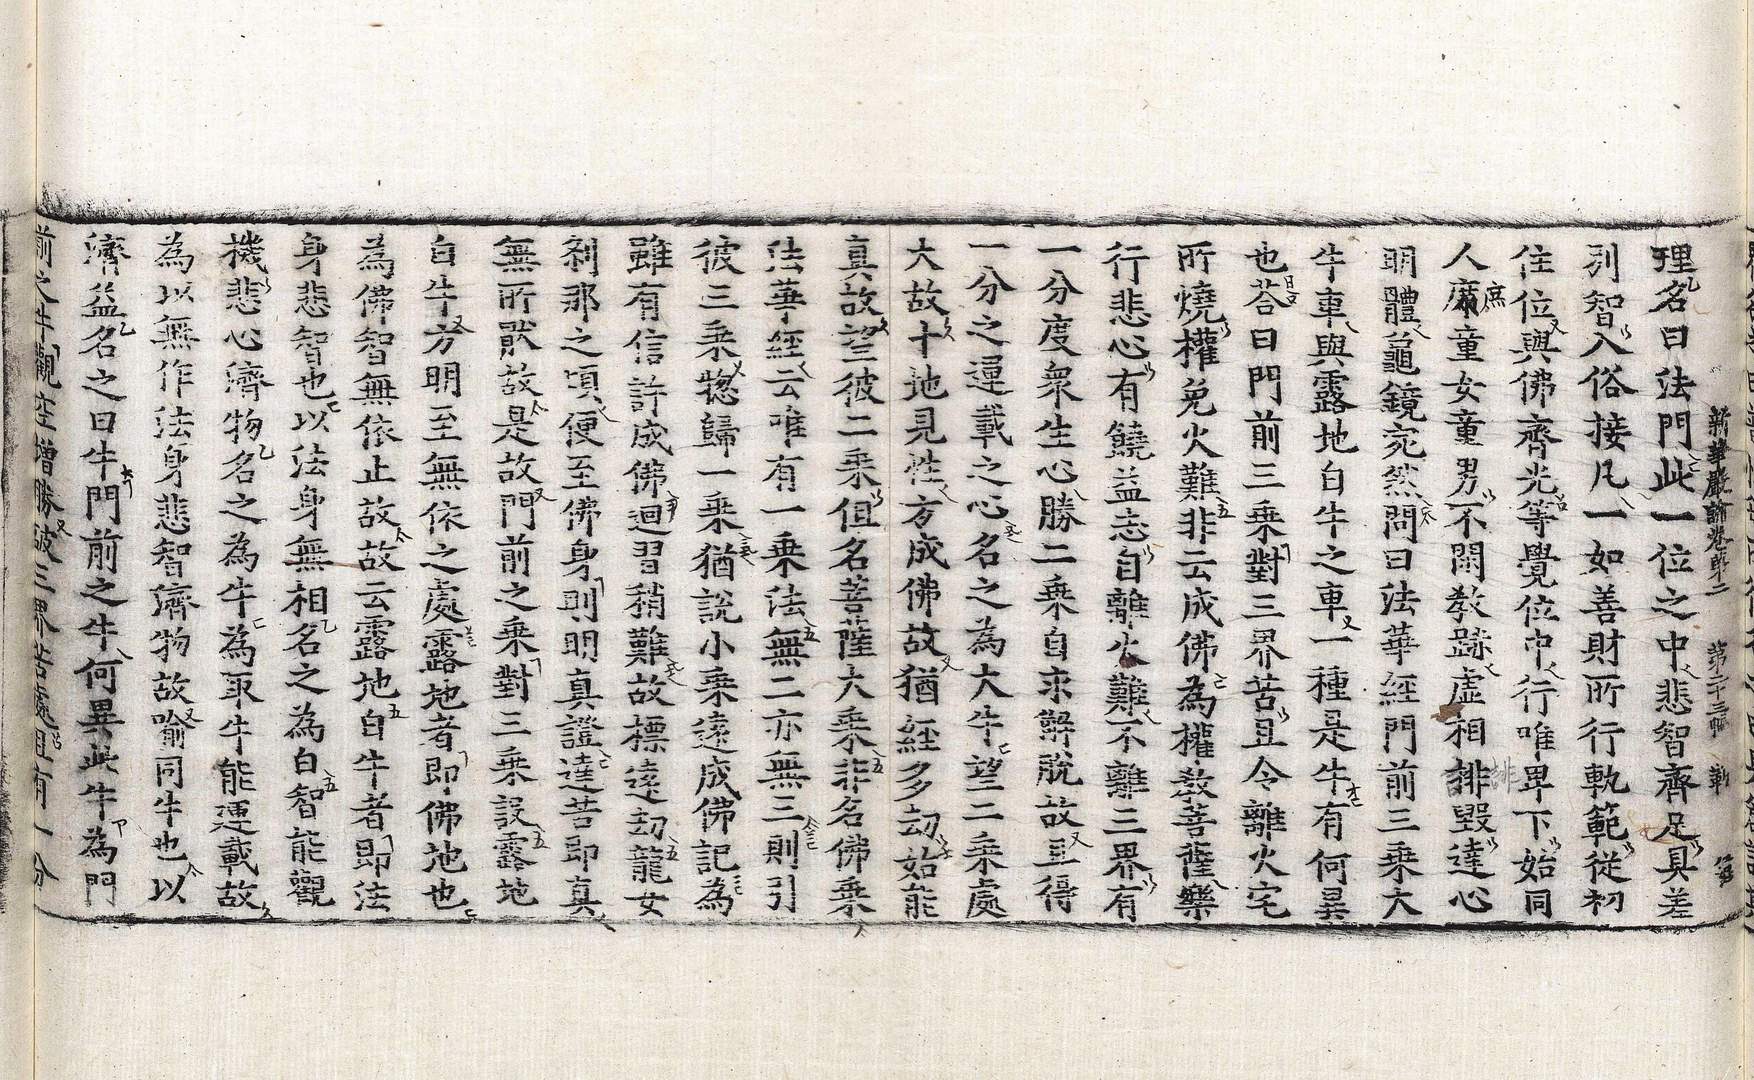 新華嚴論卷第二 第二十三幅
理名曰法門此一位之中悲智齊足具差
別智入俗接凡一如善財所行軌範從初
住位與佛齊光等覺位中行唯卑下始同
人廝童女童男不閑教跡虛相排毀達心
明體龜鏡宛然問曰法華經門前三乘大
牛車與露地白牛之車一種是牛有何異
也荅曰門前三乘對三界苦且令離火宅
所燒權免火難非云成佛為權教菩薩樂
行悲心有饒益志自離火難不離三界有
一分度衆生心勝二乘自求解脫故且得
一分之運載之心名之為大牛望二乘處
大故十地見性方成佛故猶經多劫始能
真故望彼二乘但名菩薩大乘非名佛乘
法華經云唯有一乘法無二亦無三則引
彼三乘揔歸一乘猶說小乘遠成佛記為
雖有信許成佛迴習稍難故標遠劫龍女
剎那之頃便至佛身則明真證達苦即真
無所猒故是故門前之乘對三乘設露地
白牛方明至無依之處露地者即佛地也
為佛智無依止故故云露地白牛者即法
身悲智也以法身無相名之為白智能觀
機悲心濟物名之為牛為取牛能運載故
為以無作法身悲智濟物故喻同牛也以
濟益名之曰牛門前之牛何異此牛為門
前之牛觀空增勝破三界苦處且有一分